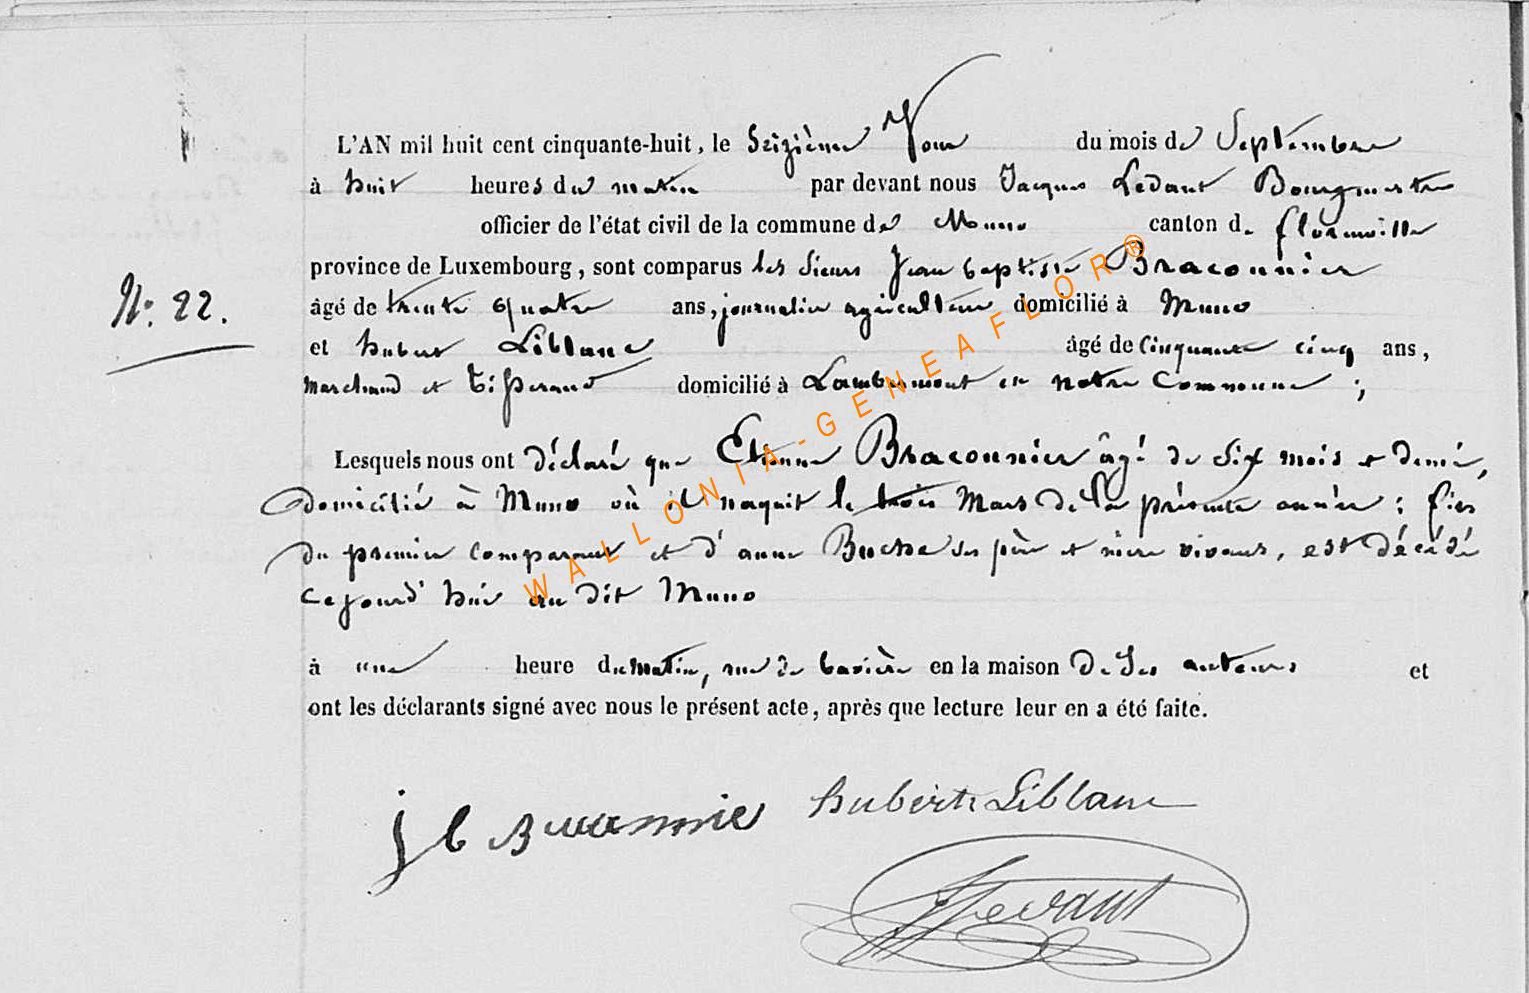 L'AN mil huit cent cinquante-huit, le Seizième Jour du mois de Septembre
à huit heures du matin par devant nous Jacques Ledant Bourgmestre
officier de l'état civil de la commune de Muno canton de florenville
province de Luxembourg, sont comparus les Sieurs Jean baptiste Braconnier
N°. 22.
âgé de trente quatre ans, journalier agriculteur domicilié à Muno
et hubert Leblanc âgé de Cinquante cinq ans,
Marchand et domicilié à Lambermont en notre Commune ;
Lesquels nous ont déclaré que Etienne Braconnier âgé de Six mois et demi,
domicilié à Muno où il naquit le trois Mars de la présente année ; fils
du premier Comparant et d'anne ses père et mère vivans, est décédé
Cejourd'hui au dit Muno
à une heure du matin, rue de en la maison de Ses auteurs et
ont les déclarants signé avec nous le présent acte, après que lecture leur en a été faite.
j b Braconnier hubert Leblanc
Ledant
WALLONIA-GENEAFLOR®